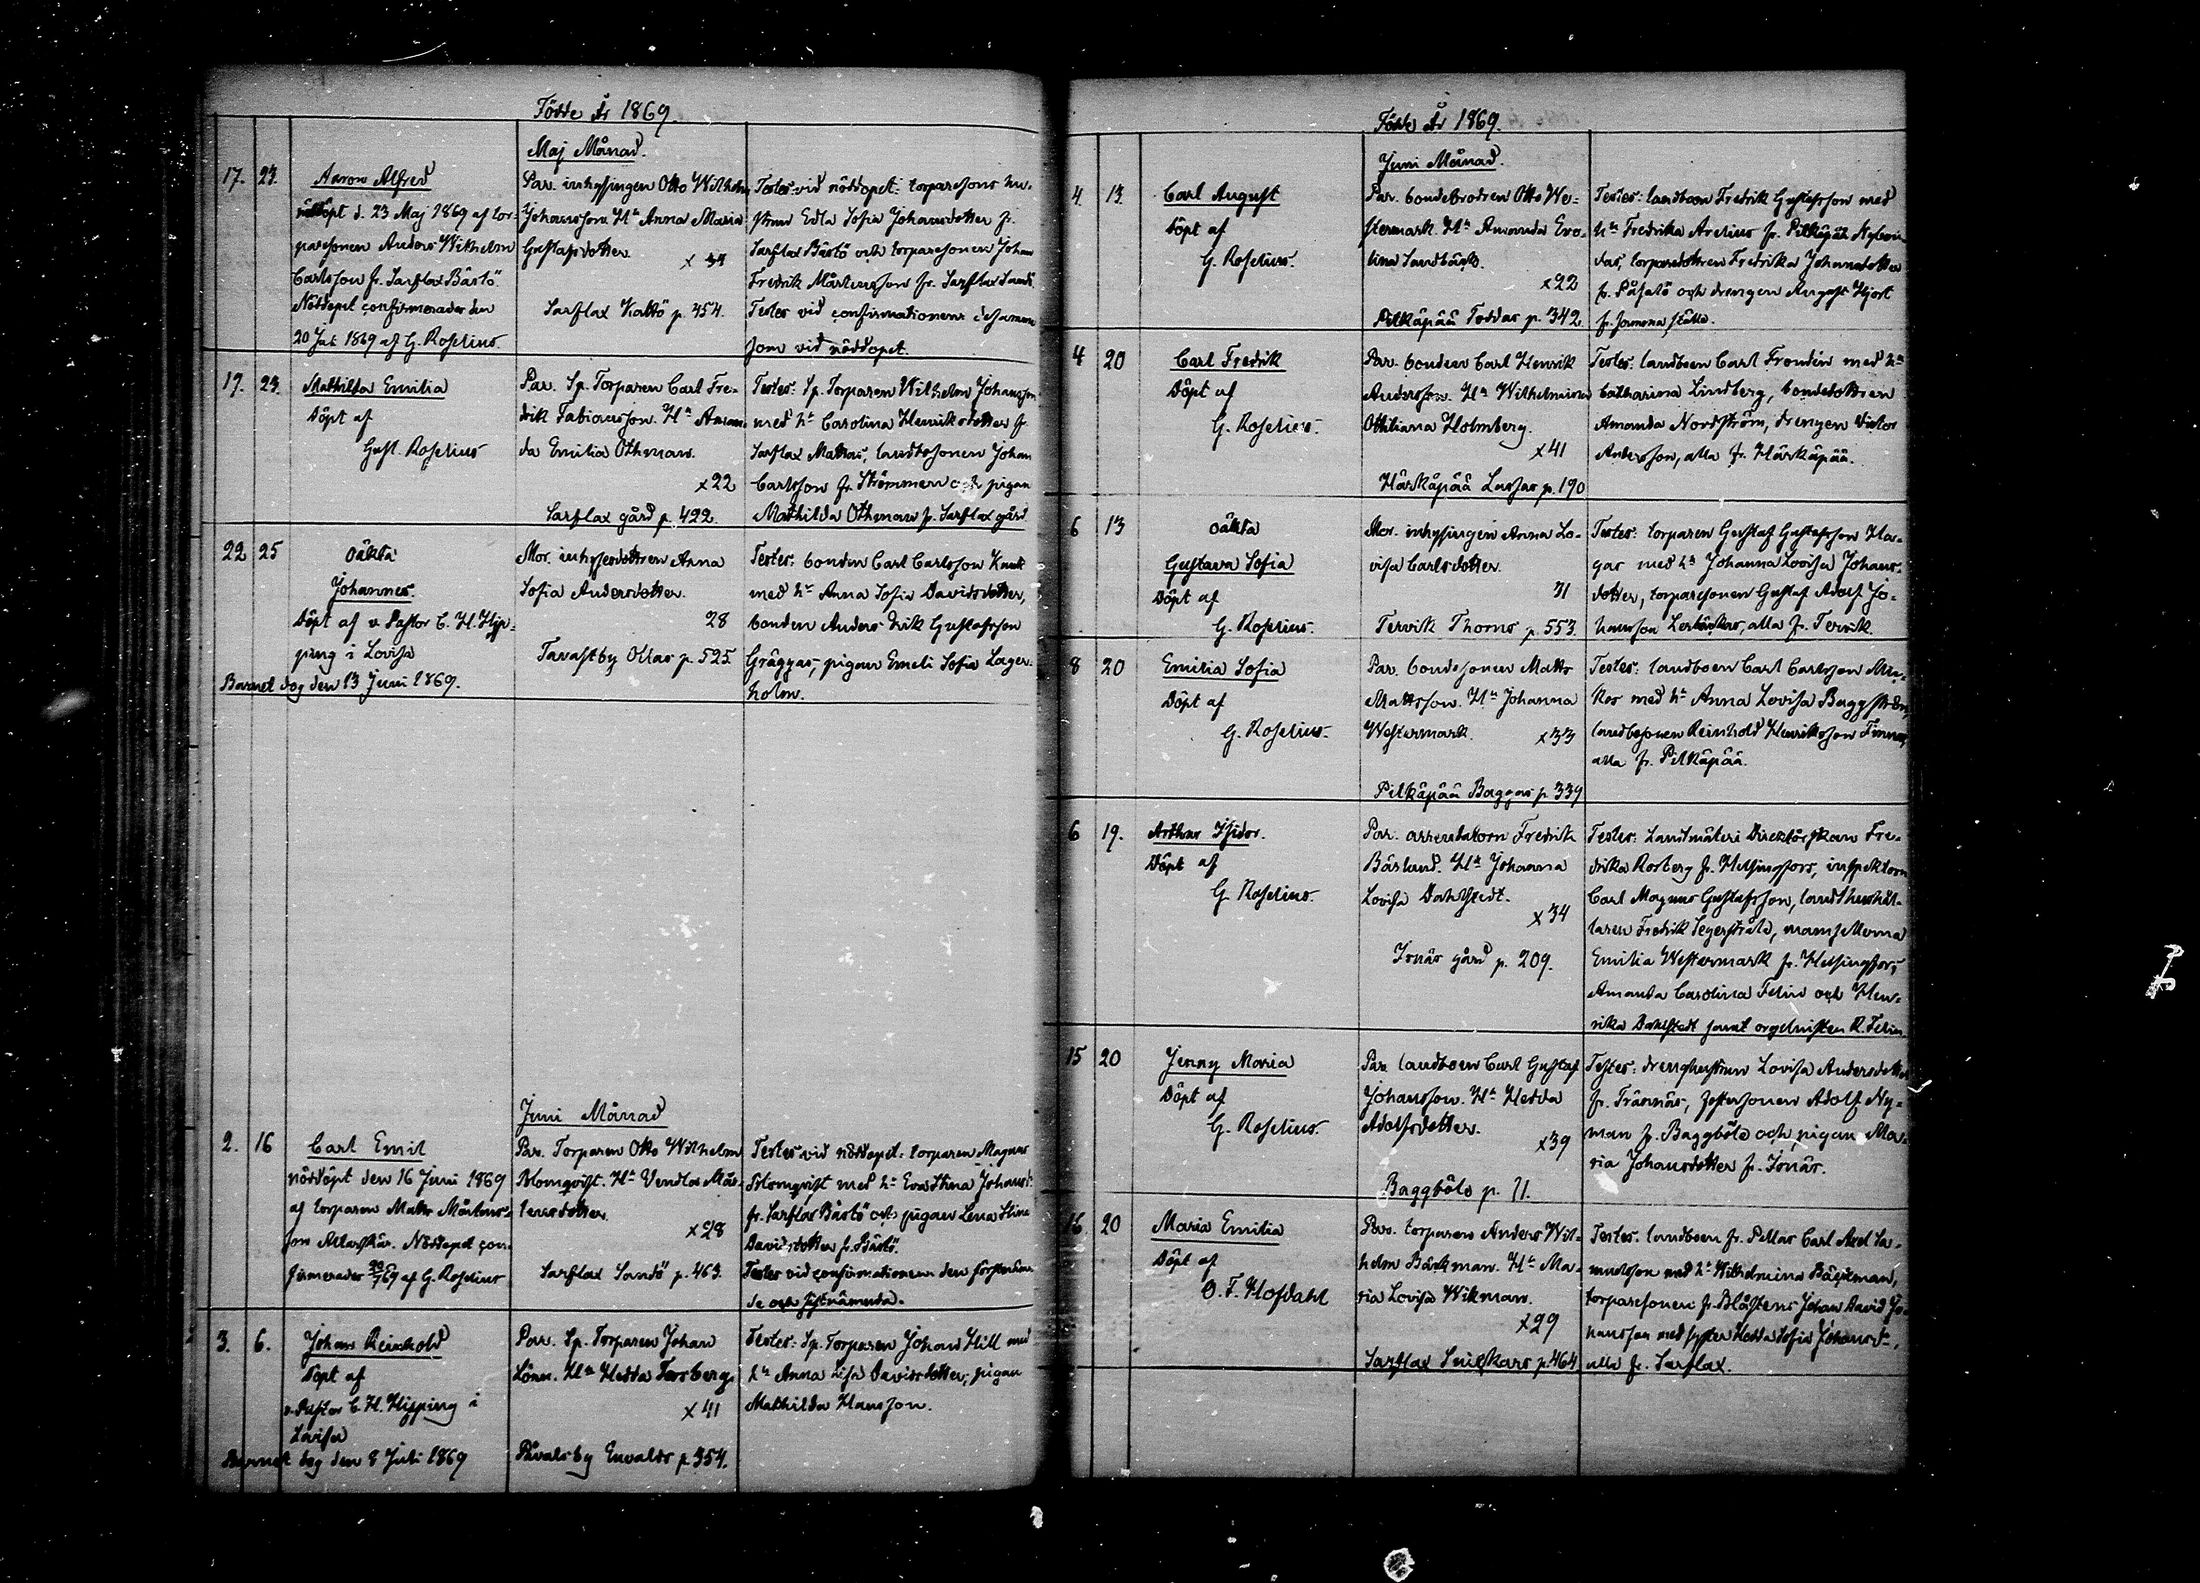 Födde År 1869.
Maj Månad.
17. 23. Aaron Alfred
nöddöpt d. 23 Maj 1869 af tor-
paresonen Anders Wilhelm
Carlsson fr. Sarflax Bästö.
Nöddopet confirmerades den
20 Juli 1869 af G. Roselius.
Par. inhysingen Otto Wilhelm
Johansson. H:u Anna Maria
Gustafsdotter.
x 34
Sarflax Kattö p. 454.
Testes vid nöddopet: torparesons hu-
strun Edla Sofia Johansdotter fr.
Sarflax Bästö och torparesonen Johan
Fredrik Mårtensson fr. Sarflax Sandö.
Testes vid confirmationen desamma
som vid nöddopet.
17. 23. Mathilda Emilia
Döpt af
Gust. Roselius
Par. Sp. Torparen Carl Fre-
drik Fabiansson. H:u Aman-
da Emilia Othman.
x22
Sarflax gård p. 422.
Testes: Sp. Torparen Wilhelm Johansson
med h:u Carolina Henriksdotter fr.
Sarflax Mattas, landtbosonen Johan
Carlsson fr. Strömmen och pigan
Mathilda Othman fr. Sarflax gård
22 25 oäkta
Johannes.
Döpt af v. Pastor C. H. Hip-
ping i Lovisa
Barnet dog den 13 Juni 1869.
Mor. inhysesdottren Anna
Sofia Andersdotter.
28
Tavastby Ollas p. 525.
Testes: bonden Carl Carlsson Knut
med h:u Anna Sofia Davidsdotter,
bonden Anders Erik Gustafsson
Gräggas, pigan Emeli Sofia Lager-
holm.
Juni Månad
2. 16 Carl Emil
nöddöpt den 16 Juni 1869
af torparen Matts Mårtens-
son Allarskär. Nöddopet con-
firmerades /69 af G. Roselius
Par. Torparen Otto Wilhelm
Blomqvist. H:u Vendla Mår-
tensdotter.
x28
Sarflax Sandö p. 463.
Testes vid nöddopet: torparen Magnus
Blomqvist med h:u Eva Stina Johansd:r
fr. Sarflax Bästö och pigan Lena Stina
Davidsdotter fr. Bästö.
Testes vid confirmationen den förstnämn-
de och sistnämnda.
3. 6. Johan Reinhold
Döpt af
v. Pastor C. H. Hipping i
Lovisa
Barnet dog den 8 Juli 1869
Par. Sp. Torparen Johan
Lönn. H:u Hedda Forsberg.
x 41
Påvalsby Envalds p. 354.
Testes: Sp. Torparen Johan Hill med
h:u Anna Lisa Davidsdotter, pigan
Mathilda Hansson.
Födde År 1869.
Juni Månad.
4. 13. Carl August
Döpt af
G. Roselius.
Par. bondebrodren Otto We-
stermark. H:u Amanda Evo-
lina Sandbäck.
x22
Pilkäpää Toddas p. 342
Testes: landboen Fredrik Gustafsson med
h:u Fredrika Arelius fr. Pilkäpää
torparedottren Fredrika Johansdotter
fr. Påsalö och drengen August Hjort
fr. samma ställe.
4 20 Carl Fredrik
Döpt af
G. Roselius.
Par. bonden Carl Henrik
Andersson. H:u Wilhelmina
Othiliana Holmberg.
x41
Härkäpää Lassas p. 190
Testes: landboen Carl Frondén med h:u
Catharina Lindberg, bondedottren
Amanda Nordström, drengen Victor
Andersson, alla fr. Härkäpää.
6 13 oäkta
Gustava Sofia
Döpt af
G. Roselius.
Mor. inhysingen Anna Lo-
visa Carlsdotter.
31
Tervik Thorns p. 553.
Testes: torparen Gustaf Gustafsson Ha-
gas med h:u Johanna Lovisa Johans-
dotter, torparesonen Gustaf Adolf Jo-
hansson alla fr. Tervik.
8 20 Emilia Sofia
Döpt af
G. Roselius.
Par. bondesonen Matts
Mattsson. H:u Johanna
Westermark.
x33
Pilkäpää Baggas p. 339
Testes: landboen Carl Carlsson Mu-
kos med h:u Anna Lovisa Baggström,
landbosonen Reinhold Henriksson Finnas,
alla fr. Pilkäpää.
6 19. Arthur Isidor.
Döpt af
G. Roselius.
Par. arrendatorn Fredrik
Bäslund. H:u Johanna
Lovisa Dahlstedt.
x34
Isnäs gård p. 209.
Testes: Landtmäteri Direktörskan Fre-
drika Rosberg fr. Helsingfors, inspektorn
Carl Magnus Gustafsson, landthushål-
laren Fredrik Segerstråle, mamsellerna
Emilia Westermark fr. Helsingfors,
Amanda Carolina Felin och Hen-
rika Dahlstedt samt orgelnisten R. Felin.
15 20 Jenny Maria
Döpt af
G. Roselius.
Par. landboen Carl Gustaf
Johansson. H:u Hedda
Adolfsdotter.
x39
Baggböle p. 71.
Testes: drenghustrun Lovisa Andersdotter
fr. Trännäs, fostersonen Adolf Ny-
man fr. Baggböle och pigan Ma-
ria Johansdotter fr. Isnäs.
16 20 Maria Emilia
Döpt af
O. F. Hofdahl
Par. torparen Anders Wil-
helm Bäckman. H:u Ma-
ria Lovisa Wikman.
x29
Sarflax p. 464
Testes: landboen fr. Pellas Carl Axel Sa-
muelsson med h:u Wilhelmina Bäckman,
torparesonen fr. Blåstens Johan David Jo-
hansson med syster Hedda Sofia Johansd:r,
alla fr. Sarflax.